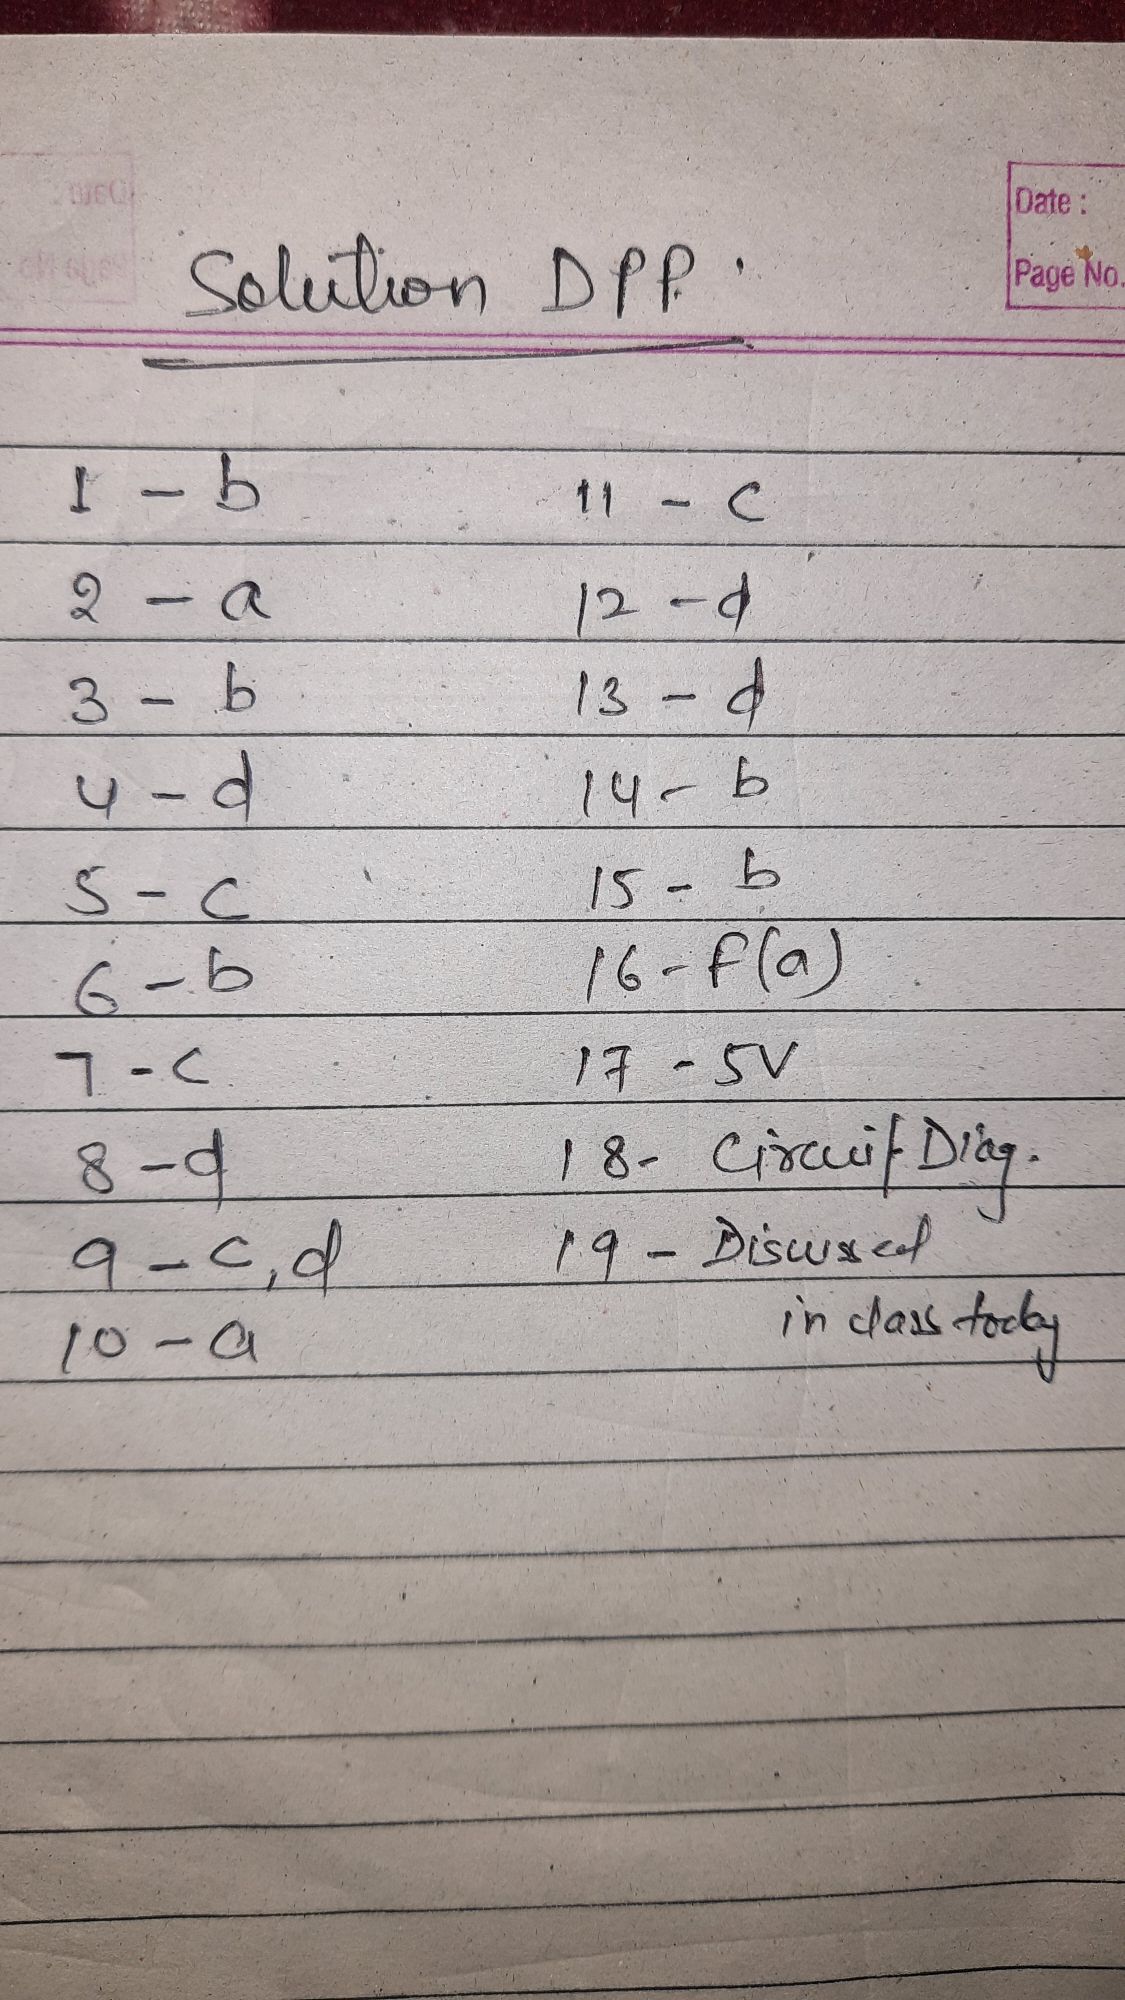 Date :
Page No.
Solution DPP.
1 - b
2 - a
3 - b
4 - d
5 - c
6 - b
7 - c
8 - d
9 - c, d
10 - a
11 - c
12 - d
13 - d
14 - b
15 - b
16 - F(a)
17 - 5V
18 - Circuit Diag.
19 - Discussed
in class today